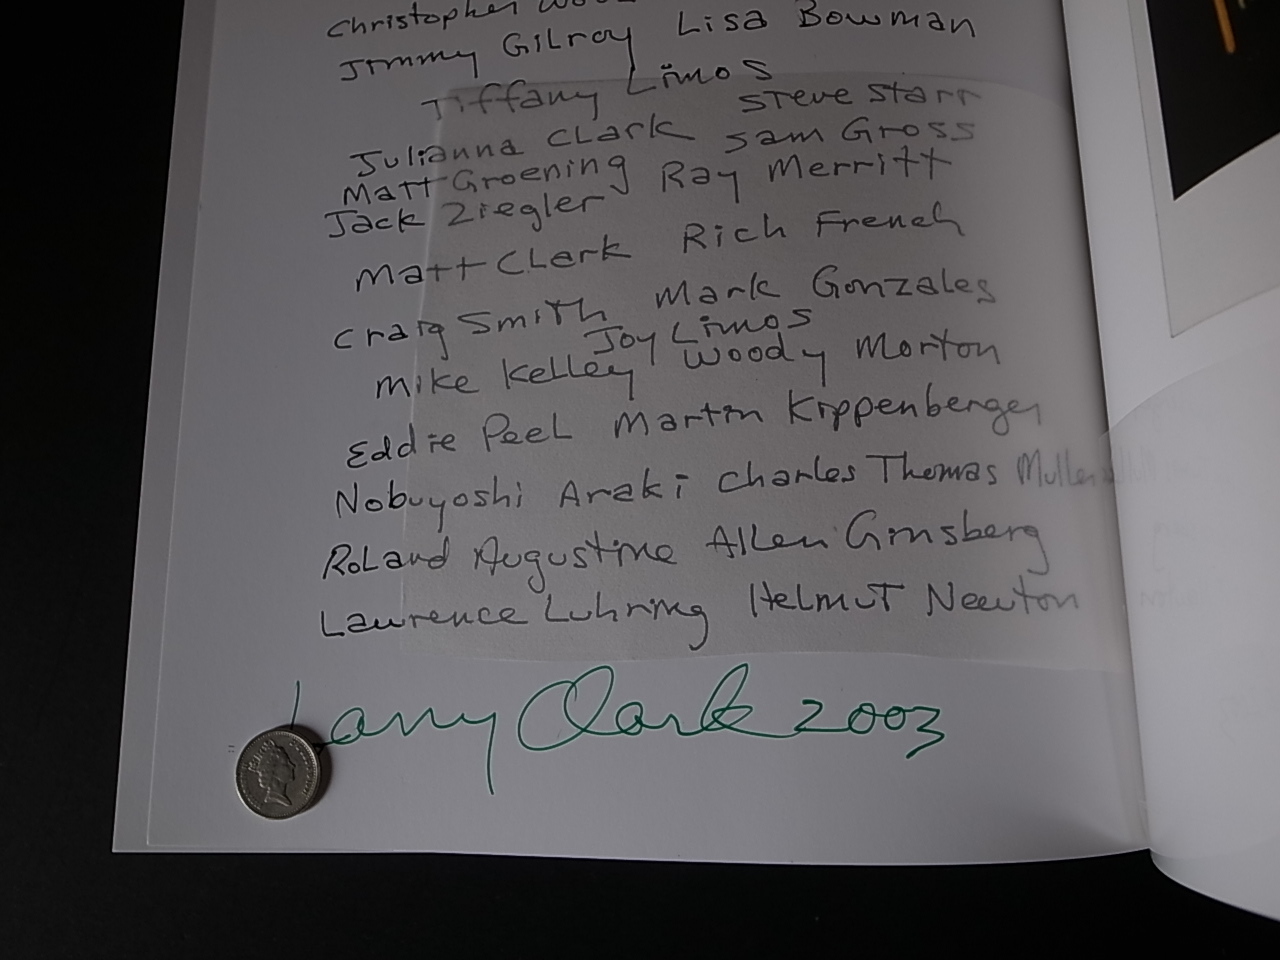 Christopher
Jimmy Gilroy Lisa Bowman
Tiffany Limos
Steve Starr
Julianna Clark Sam Gross
Matt Groening Ray Merritt
Jack Ziegler
Matt Clark Rich French
Craig Smith Mark Gonzales
Joy Limos
Mike Kelley Woody Morton
Eddie Peel Martin Kippenberger
Nobuyoshi Araki Charles Thomas Mullen
Roland Augustine Allen Ginsberg
Lawrence Luhring Helmut Newton
Larry Clark 2003